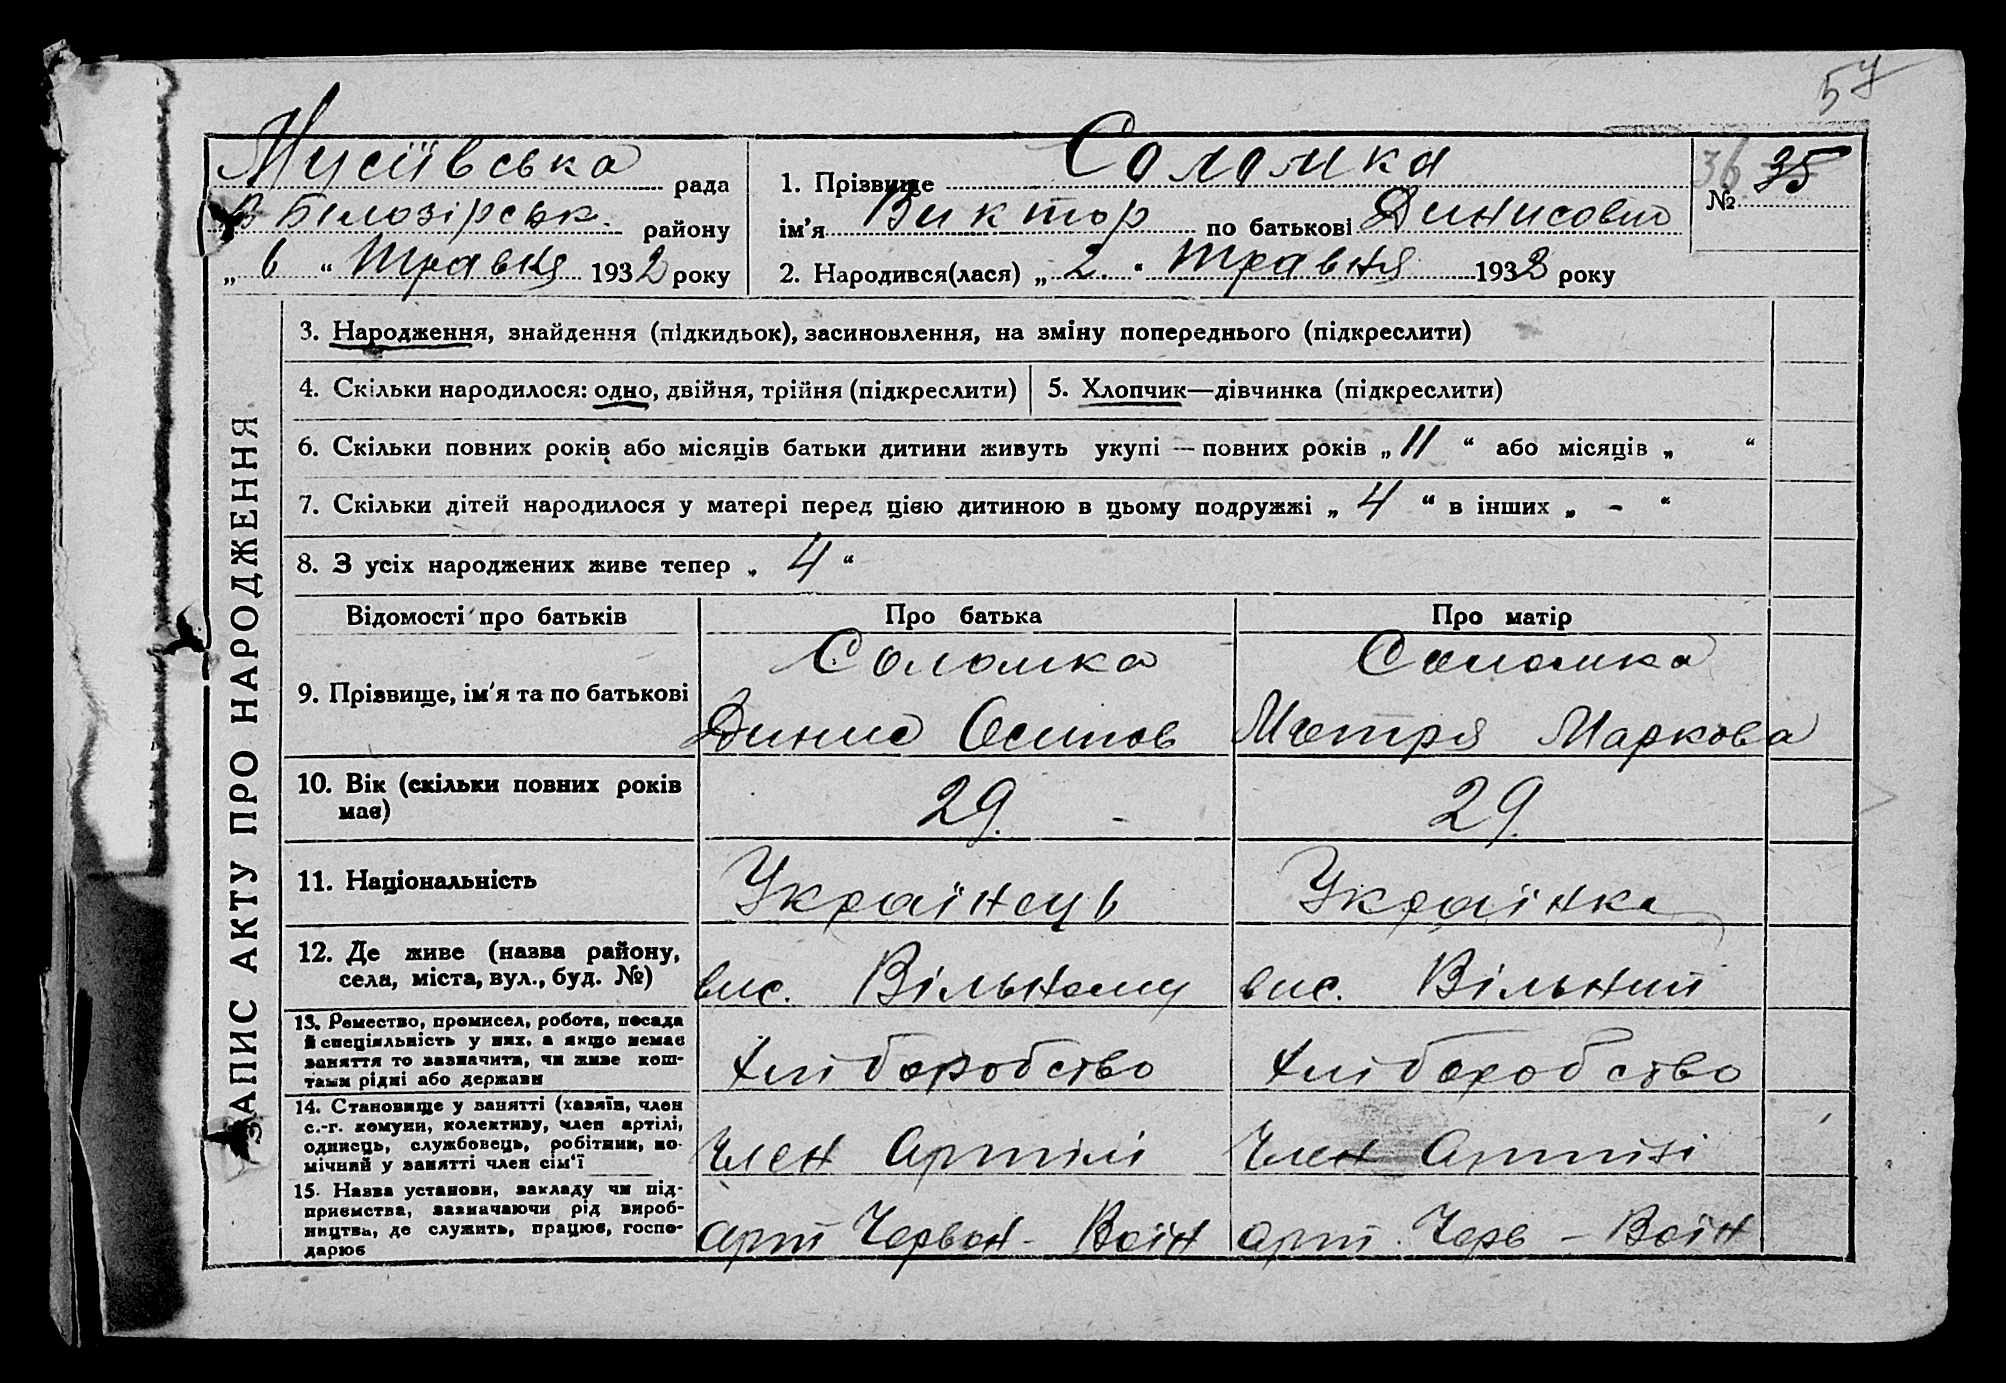 57
Мусіївська рада
В Білозірськ. району
„ 6 “ травня 1932 року
1. Прізвище Соломка
ім’я Виктор по батькові Динисович
2. Народився(лася) „ 2. “ травня 1932 року
36 35
№
ЗАПИС АКТУ ПРО НАРОДЖЕННЯ
3. Народження, знайдення (підкидьок), засиновлення, на зміну попереднього (підкреслити)
4. Скільки народилося: одно, двійня, трійня (підкреслити)
5. Хлопчик—дівчинка (підкреслити)
6. Скільки повних років або місяців батьки дитини живуть укупі — повних років „ 11 “ або місяців „ “
7. Скільки дітей народилося у матері перед цією дитиною в цьому подружжі „ 4 “ в інших „ - “
8. З усіх народжених живе тепер „ 4 “
Відомості про батьків
Про батька
Про матір
9. Прізвище, ім’я та по батькові
Соломка
Динис Осипов
Соломка
Мотря Маркова
10. Вік (скільки повних років
має)
29.
29.
11. Національність
Українець
Українка
12. Де живе (назва району,
села, міста, вул., буд. №)
вис. Вільному
вис. Вільний
13. Ремество, промисел, робота, посада
й спеціяльність у них, а якщо немає
заняття то зазначити, чи живе кош-
тами рідні або держави
Хліборобство
Хліборобство
14. Становище у занятті (хазяїн, член
с.-г. комуни, колективу, член артілі,
одинець, службовець, робітник, по-
мічний у занятті член сім’ї
Член Артілі
Член Артілі
15. Назва установи, закладу чи під-
приємства, зазначаючи рід вироб-
ництва, де служить, працює, госпо-
дарює
арт Червон - Воїн
арт. Черв - Воїн